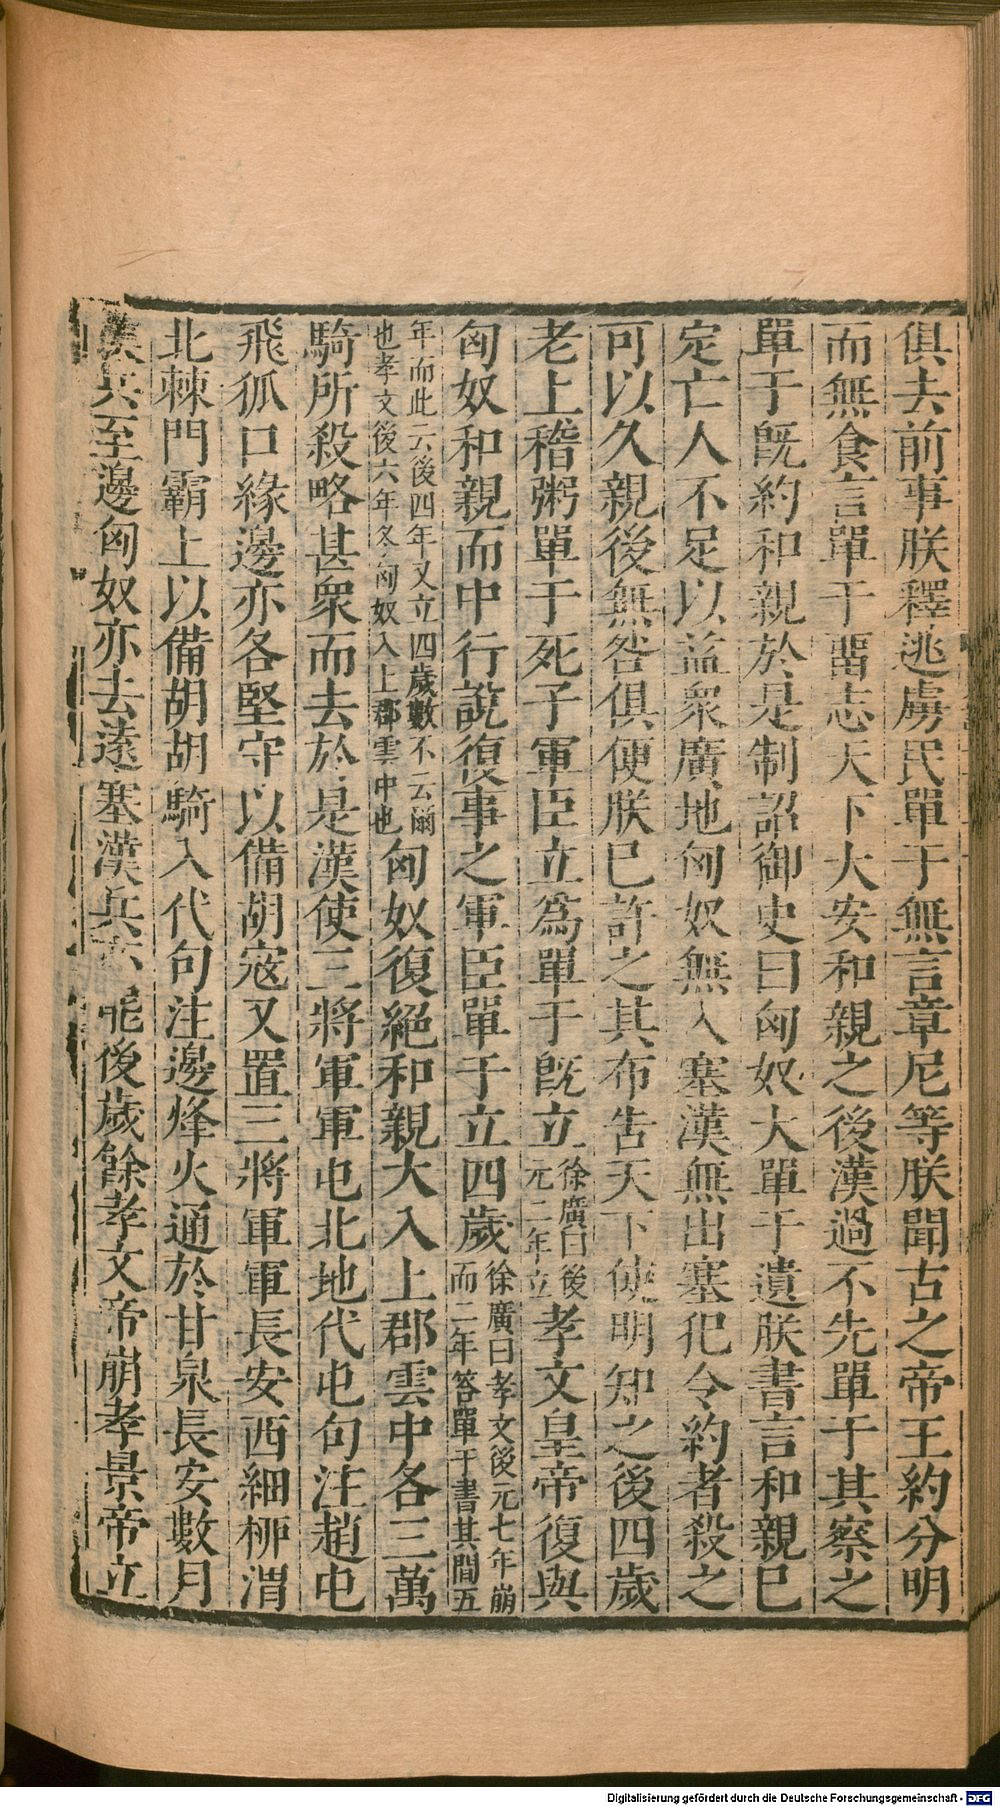 俱去前事朕釋逃虜民單于無言章尼等朕聞古之帝王約分明
而無食言單于畱志天下大安和親之後漢過不先單于其察之
單于旣約和親於是制詔御史曰匈奴大單于遺朕書言和親已
定亡人不足以益衆廣地匈奴無入塞漢無出塞犯令約者殺之
可以久親後無咎俱便朕已許之其布告天下使明知之後四歲
老上稽粥單于死子軍臣立爲單于旣立徐廣曰後元二年立孝文皇帝復與
匈奴和親而中行說復事之軍臣單于立四歲徐廣曰孝文後元七年崩而二年答單于書其間五
年而此云後四年又立四歲數不云爾也孝文後六年冬匈奴入上郡雲中也匈奴復絕和親大入上郡雲中各三萬
騎所殺略甚衆而去於是漢使三將軍軍屯北地代屯句注趙屯
飛狐口緣邊亦各堅守以備胡寇又置三將軍軍長安西細柳渭
北棘門霸上以備胡胡騎入代句注邊烽火通於甘泉長安數月
漢兵至邊匈奴亦去遠塞漢兵亦罷後歲餘孝文帝崩孝景帝立
Digitalisierung gefördert durch die Deutsche Forschungsgemeinschaft - DFG